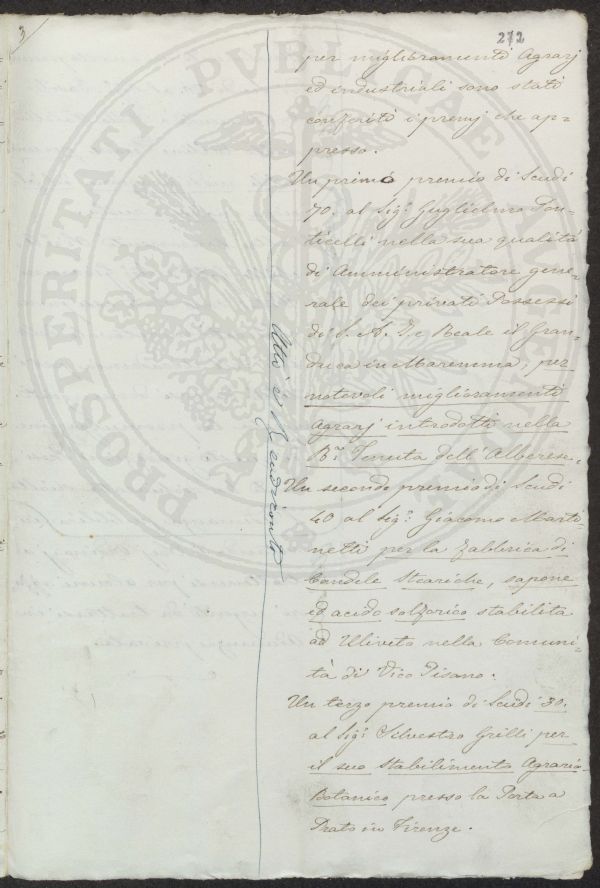 3
272
per miglioramenti Agrarj
ed industriali sono stati
conferiti i premj che ap=
presso.
Un primo premio di Scudi
70. al Sig.r Guglielmo Pon=
ticelli nella sua qualità
di Amministratore gene=
rale dei privati Possessi
di S. A. I. e Reale il Gran=
duca in Maremma, per
notevoli miglioramenti
Agrarj introdotti nella
R.a Tenuta dell'Alberese.
Un secondo premio di Scudi
40 al Sig.r Giacomo Marti=
netti per la fabbrica di
Candele Steariche, sapone
ed acido solforico stabilita
ad Uliveto nella Comuni=
tà di Vico Pisano.
Un terzo premio di Scudi 30.
al Sig.r Silvestro Grilli per
il suo Stabilimento Agrario
Botanico presso la Porta a
Prato in Firenze.
Atti e Rendiconto
PROSPERITATI PVBLICAE AVGENDA